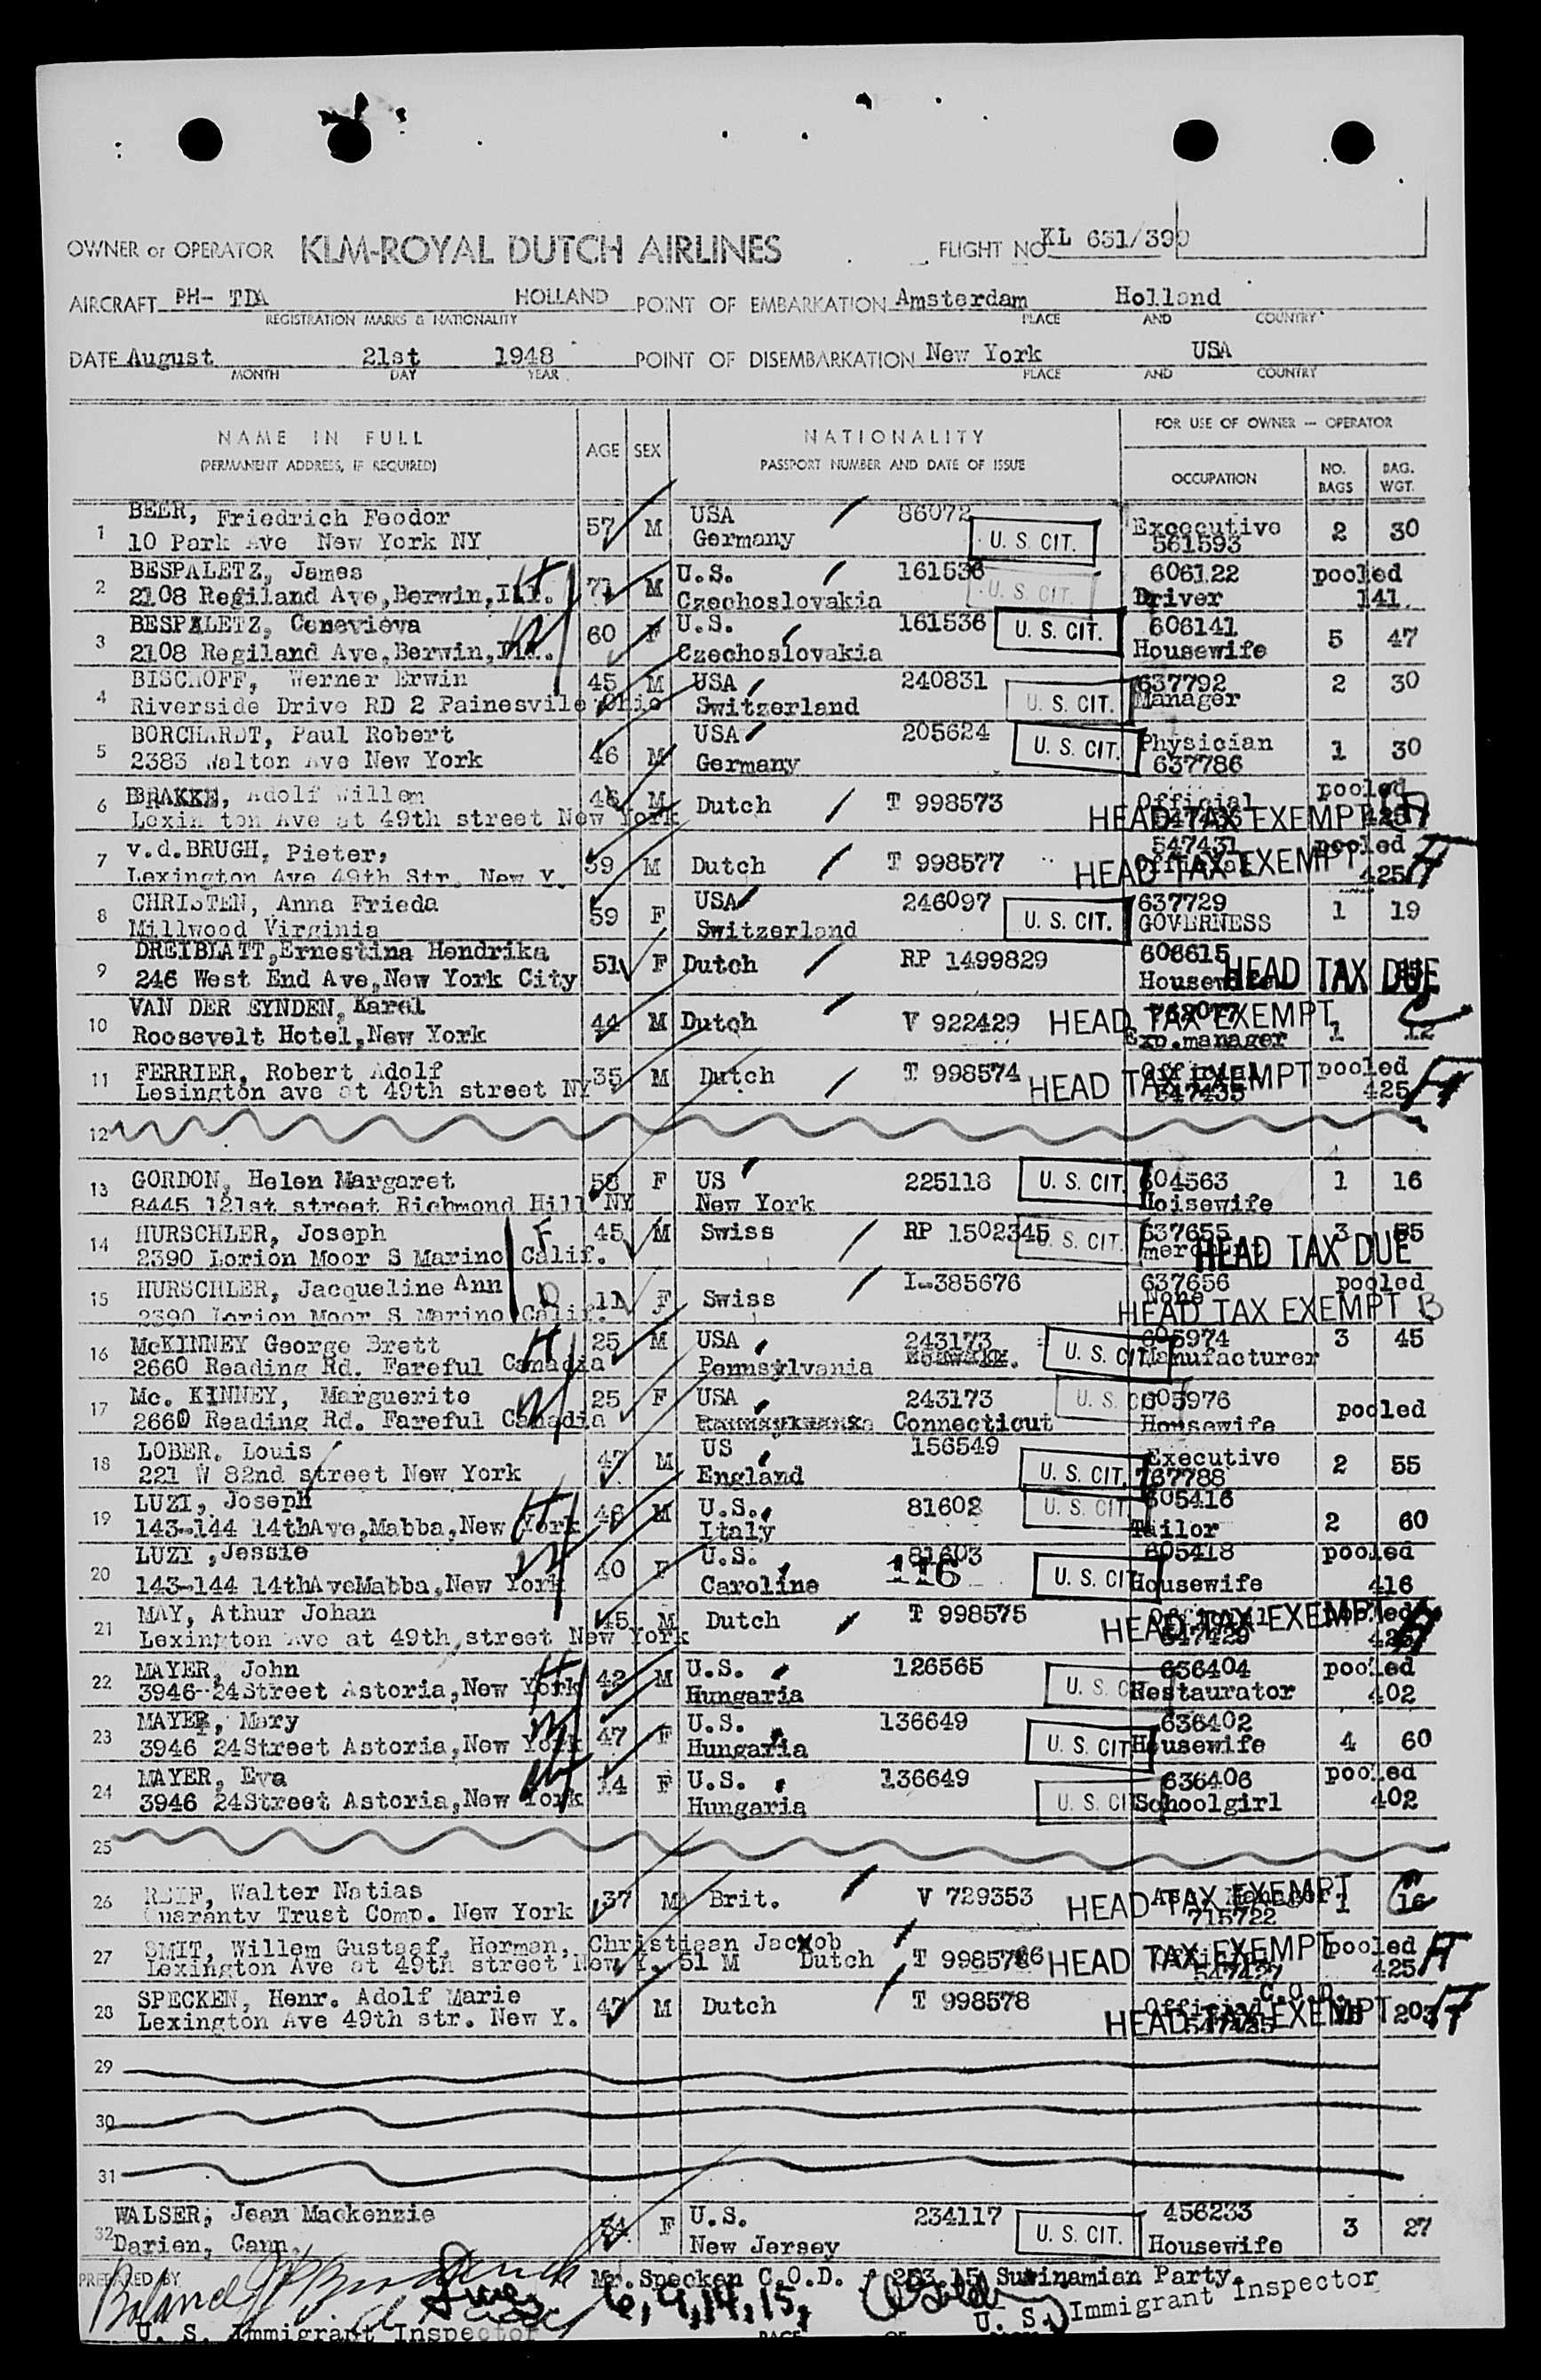 OWNER or OPERATOR KLM-ROYAL DUTCH AIRLINES FLIGHT NO. KL 651/390
AIRCRAFT PH- TDA HOLLAND POINT OF EMBARKATION Amsterdam Holland
REGISTRATION MARKS & NATIONALITY PLACE AND COUNTRY
DATE August 21st 1948 POINT OF DISEMBARKATION New York USA
MONTH DAY YEAR PLACE AND COUNTRY
NAME IN FULL AGE SEX NATIONALITY FOR USE OF OWNER — OPERATOR
(PERMANENT ADDRESS, IF REQUIRED) PASSPORT NUMBER AND DATE OF ISSUE OCCUPATION NO. BAGS BAG. WGT.
1 BEER, Friedrich Feodor 57 M USA 86072 Excecutive 2 30
10 Park Ave New York NY Germany U. S. CIT. 561593
2 BESPALETZ, James 71 M U.S. 161536 606122 pooled
2108 Regiland Ave,Berwin,Ill. Czechoslovakia U. S. CIT. Driver 141
3 BESPALETZ, Genevieva 60 F U.S. 161536 U. S. CIT. 606141 5 47
2108 Regiland Ave,Berwin,Ill. Czechoslovakia Housewife
4 BISCHOFF, Werner Erwin 45 M USA 240831 637792 2 30
Riverside Drive RD 2 Painesvile Ohio Switzerland U. S. CIT. Manager
5 BORCHARDT, Paul Robert 46 M USA 205624 U. S. CIT. Physician 1 30
2383 Walton Ave New York Germany 637786
6 BRAKKE, Adolf Willem 46 M Dutch T 998573 Official pooled
Lexin ton Ave at 49th street New York HEAD TAX EXEMPT A 425
7 v.d.BRUGH, Pieter, 39 M Dutch T 998577 547431 pooled
Lexington Ave 49th Str. New Y. HEAD TAX EXEMPT A Official 425
8 CHRISTEN, Anna Frieda 59 F USA 246097 637729 1 19
Millwood Virginia Switzerland U. S. CIT. GOVERNESS
9 DREIBLATT,Ernestina Hendrika 51 F Dutch RP 1499829 606615
246 West End Ave,New York City Housewife HEAD TAX DUE
10 VAN DER EYNDEN, Karel 44 M Dutch V 922429 HEAD TAX EXEMPT C
Roosevelt Hotel,New York Exp.manager 1 12
11 FERRIER, Robert Adolf 35 M Dutch T 998574 Official pooled
Lesington ave at 49th street NY HEAD TAX EXEMPT A 547435 425
12
13 GORDON, Helen Margaret 58 F US 225118 U. S. CIT. 604563 1 16
8445 121st street Richmond Hill NY New York Hoisewife
14 HURSCHLER, Joseph F 45 M Swiss RP 1502345 U. S. CIT. 637655 3 85
2390 Lorion Moor S Marino Calif. HEAD TAX DUE
15 HURSCHLER, Jacqueline Ann D 11 F Swiss I-385676 637656 pooled
2390 Lorion Moor S Marino Calif. None HEAD TAX EXEMPT B
16 McKINNEY George Brett H 25 M USA 243173 605974 3 45
2660 Reading Rd. Fareful Canadia Pennsylvania U. S. CIT. Manufacturer
17 Mc. KINNEY, Marguerite W 25 F USA 243173 U. S. CIT. 605976 pooled
2660 Reading Rd. Fareful Canadia Connecticut Housewife
18 LOBER, Louis 47 M US 156549 Executive 2 55
221 W 82nd street New York England U. S. CIT. 767788
19 LUZI, Joseph H 48 M U.S. 81602 U. S. CIT. 605416 2 60
143-144 14thAve,Mabba,New York Italy Tailor
20 LUZI ,Jessie W 40 F U.S. 81603 605418 pooled
143-144 14thAveMabba,New York Caroline 116 U. S. CIT. Housewife 416
21 MAY, Athur Johan 45 M Dutch T 998575 Official pooled
Lexington Ave at 49th street New York HEAD TAX EXEMPT A 547429 425
22 MAYER, John H 42 M U.S. 126565 636404 pooled
3946-24Street Astoria,New York Hungaria U. S. CIT. Restaurator 402
23 MAYER, Mary W 47 F U.S. 136649 636402 4 60
3946 24Street Astoria,New York Hungaria U. S. CIT. Housewife
24 MAYER, Eva 14 F U.S. 136649 636406 pooled
3946 24Street Astoria,New York Hungaria U. S. CIT. Schoolgirl 402
25
26 REIF, Walter Natias 37 M Brit. V 729353 HEAD TAX EXEMPT C 1 16
Guaranty Trust Comp. New York 715722
27 SMIT, Willem Gustaaf, Herman, Christiaan Jacob pooled
Lexington Ave at 49th street New Y. 51 M Dutch T 998576 HEAD TAX EXEMPT A 547427 425
28 SPECKEN, Henr. Adolf Marie 47 M Dutch T 998578 Official C.O.D.
Lexington Ave 49th str. New Y. HEAD TAX EXEMPT A 547425 15 203
29
30
31
32 WALSER, Jean Mackenzie 54 F U.S. 234117 456233 3 27
Darien, Cann. New Jersey U. S. CIT. Housewife
PREPARED BY Mr. Specken C.O.D. - 203 15 Surinamian Party.
6, 9, 14, 15,
U. S. Immigrant Inspector U. S. Immigrant Inspector
PAGE OF